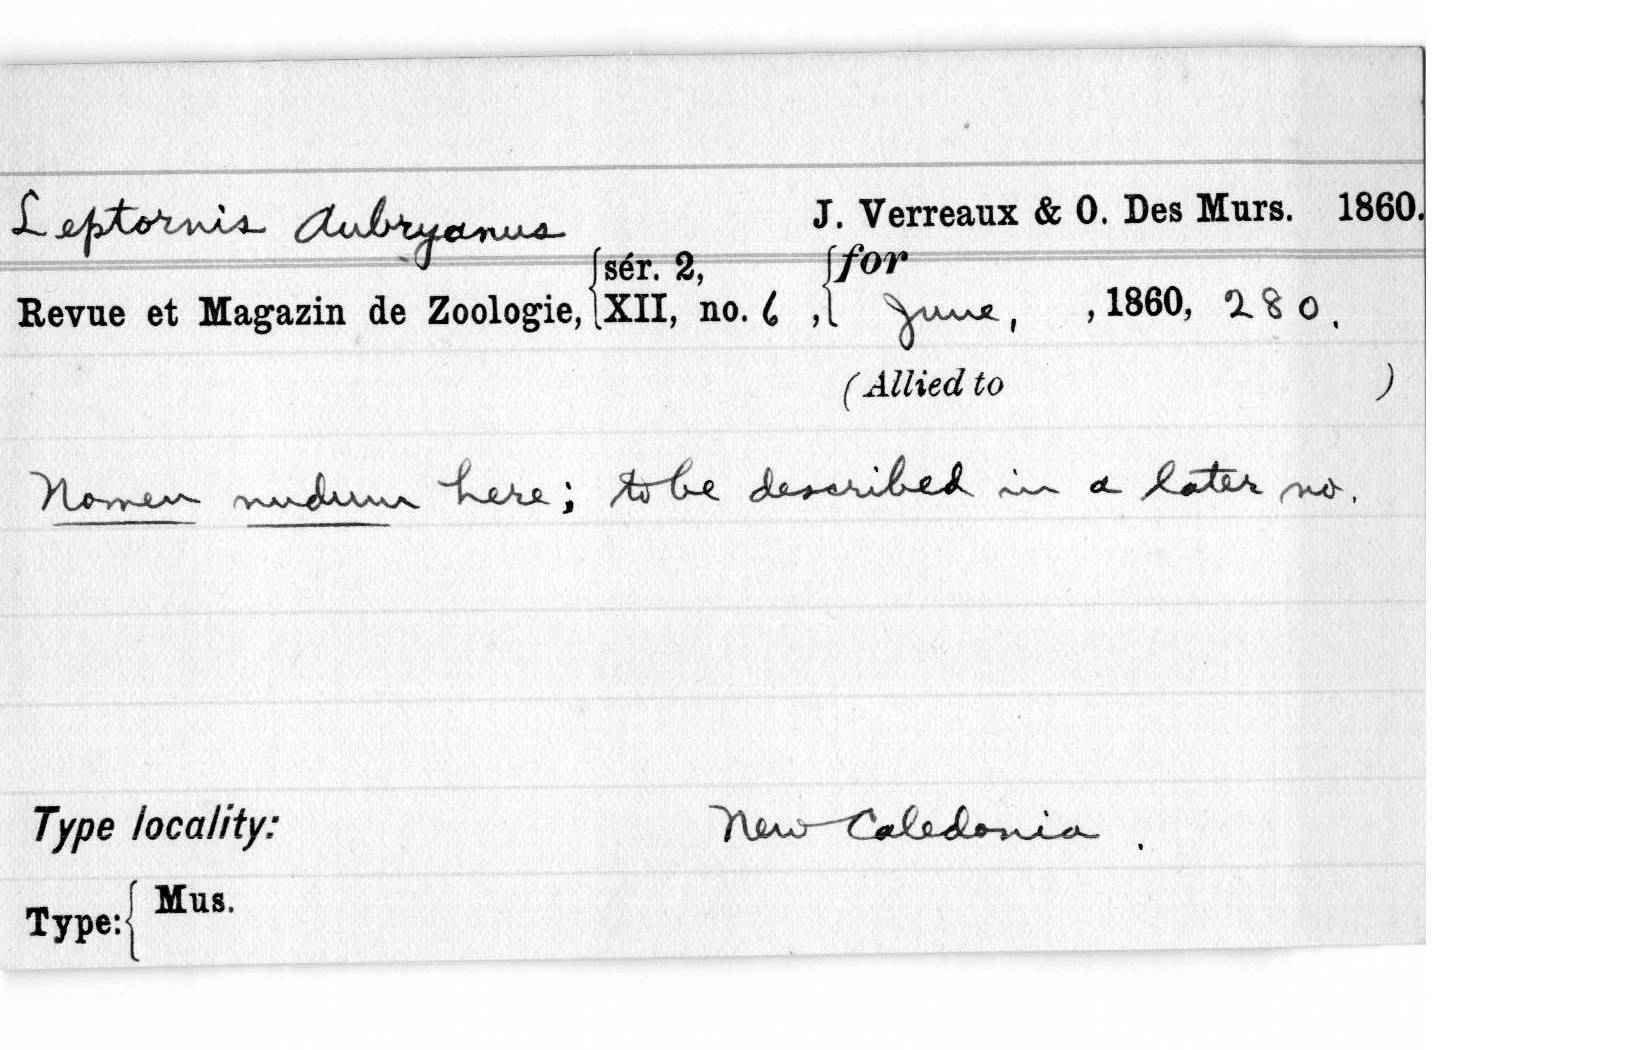 Leptornis Aubryanus J. Verreaux & O. Des Murs. 1860.
sér. 2, for
Revue et Magazin de Zoologie, XII, no. 6, June, , 1860, 280.
(Allied to )
Nomen nudum here; to be described in a later no.
Type locality: New Caledonia.
Type: Mus.